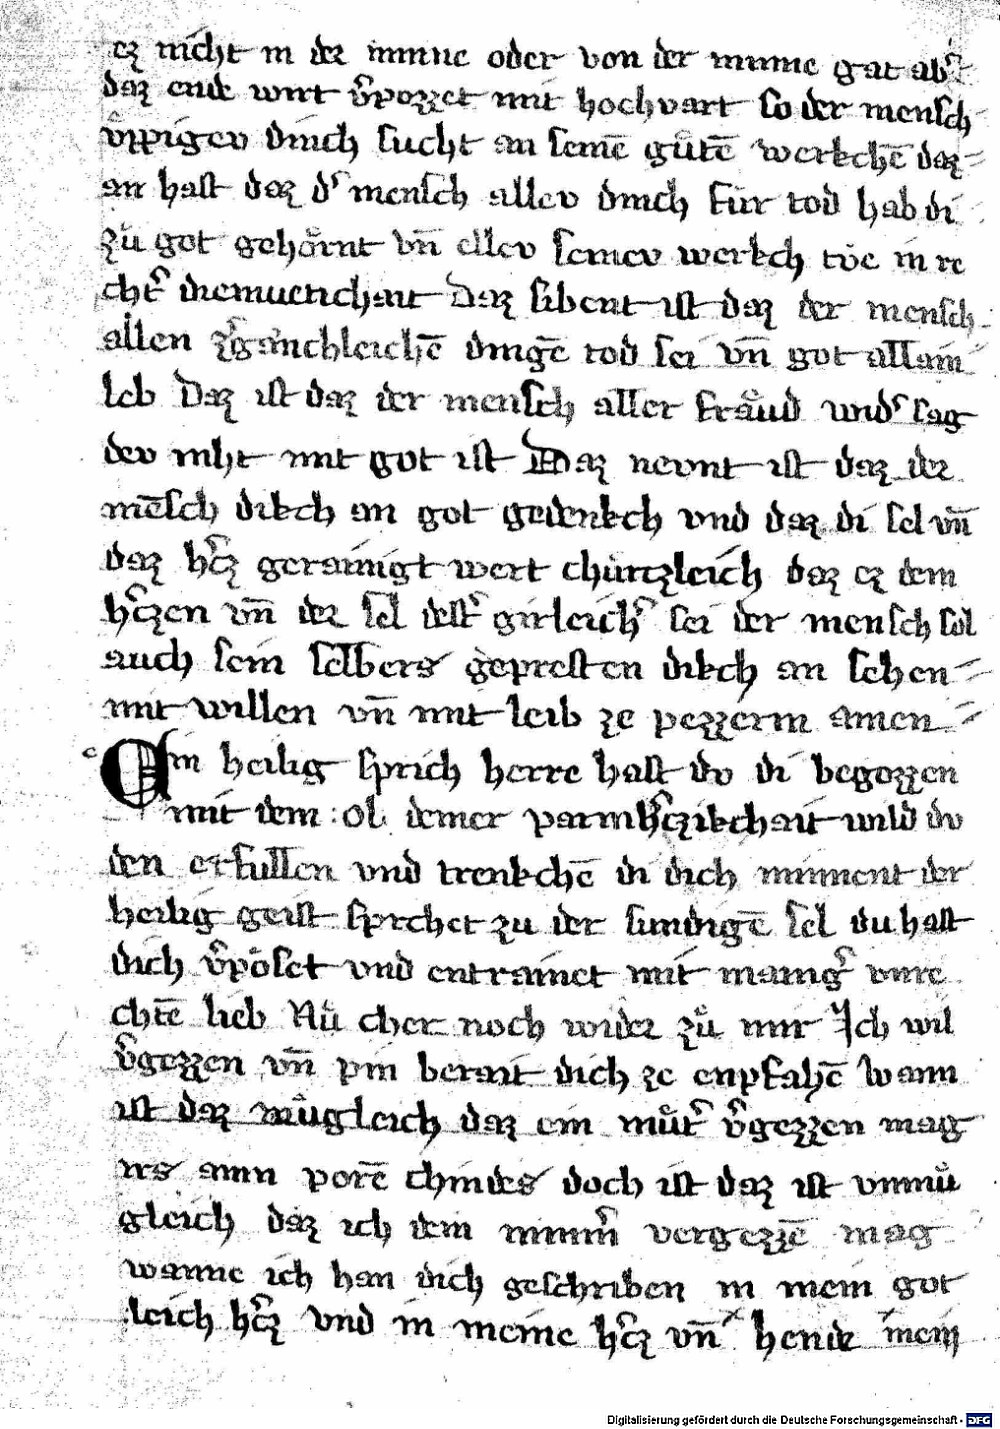 ez nicht in der minne oder von der minne gat ab᷑
daz ende wirt v᷑pozzet mit hochvart so der mensch
v᷑ppigev dinch sucht an seinē gůtē werkchē daz
an hast daz d᷑ mensch allev dinch fur tod hab di
zů got gehoͤrnt vn̄ ellev seinev werkch tůe in re
cht᷑ diemuetichait Daz sibent ist daz der mensch
allen z᷑gänchleichē dingē tod sei vn̄ got allain
leb Daz ist daz der mensch aller fraͤud wid᷑sag
dev niht mit got ist Daz nevnt ist daz der
mēsch dikch an got gedenkch vnd daz di sel vn̄
daz h᷑cz gerainigt wert chürtzleich daz ez dem
h᷑czen vn̄ der sel dest᷑ girleich᷑ sei der mensch sol
auch sein selbers gepresten dikch an sehen
mit willen vn̄ mit leib ze pezzerm amen
Ein heilig sprich herre hast dv di begozzen
mit dem ol deiner parmh᷑czikchait wild dv
den erfullen vnd trenkchē di dich minnent der
heilig geist sprchet zu der sundigē sel du hast
dich v᷑poͤset vnd entrainet mit mainig᷑ vnre
chtē lieb Nů cher noch wider zů mir Ich wil
v᷑gezzen vn̄ pin berait dich ze enpfahē Wann
ist daz můgleich daz ein můt᷑ v᷑gezzen mag
irs ainn porē chindes doch ist daz ist vnmů
gleich daz ich dein nimm᷑ vergezzē mag
wanne ich han dich geschriben in mein got
leich h᷑cz vnd in meine h᷑cz vn̄ hende mein
Digitalisierung gefördert durch die Deutsche Forschungsgemeinschaft - DFG